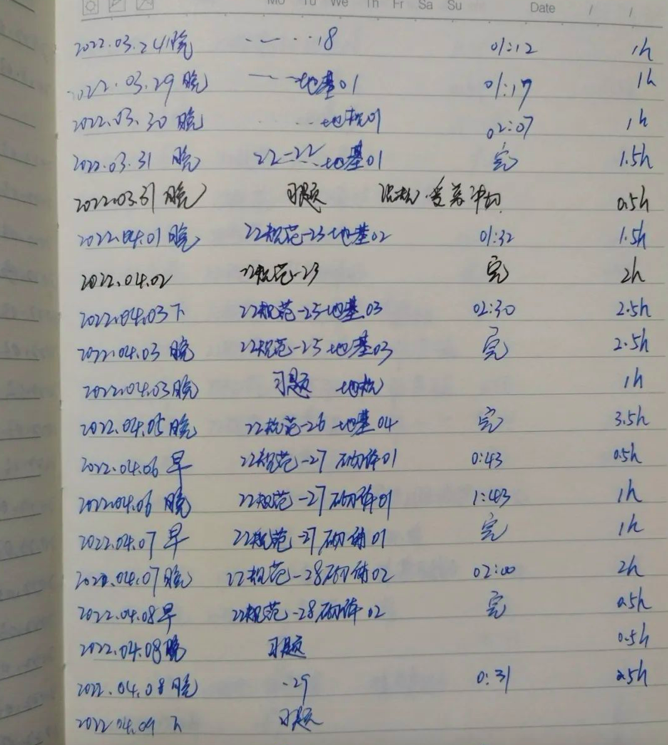 Mo Tu We Th Fr Sa Su Date / /
2022.03.24晚 18 01:12 1h
2022.03.29晚 地基01 01:17 1h
2022.03.30晚 01 02:07 1h
2022.03.31 晚 22-22 地基01 完 1.5h
2022.03.31晚 习题 0.5h
2022.04.01晚 22规范-23地基02 01:32 1.5h
2022.04.02 22规范-23 完 2h
2022.04.03下 22规范-25地基03 02:30 2.5h
2022.04.03晚 22规范-25地基03 完 2.5h
2022.04.03晚 习题 1h
2022.04.05晚 22规范-26地基04 完 3.5h
2022.04.06早 22规范-27砌体01 0:43 0.5h
2022.04.06晚 22规范-27砌体01 1:43 1h
2022.04.07早 22规范-27砌体01 完 1h
2022.04.07晚 22规范-28砌体02 02:00 2h
2022.04.08早 22规范-28砌体02 完 0.5h
2022.04.08晚 习题 0.5h
2022.04.08晚 -29 0:31 0.5h
2022.04.09下 习题